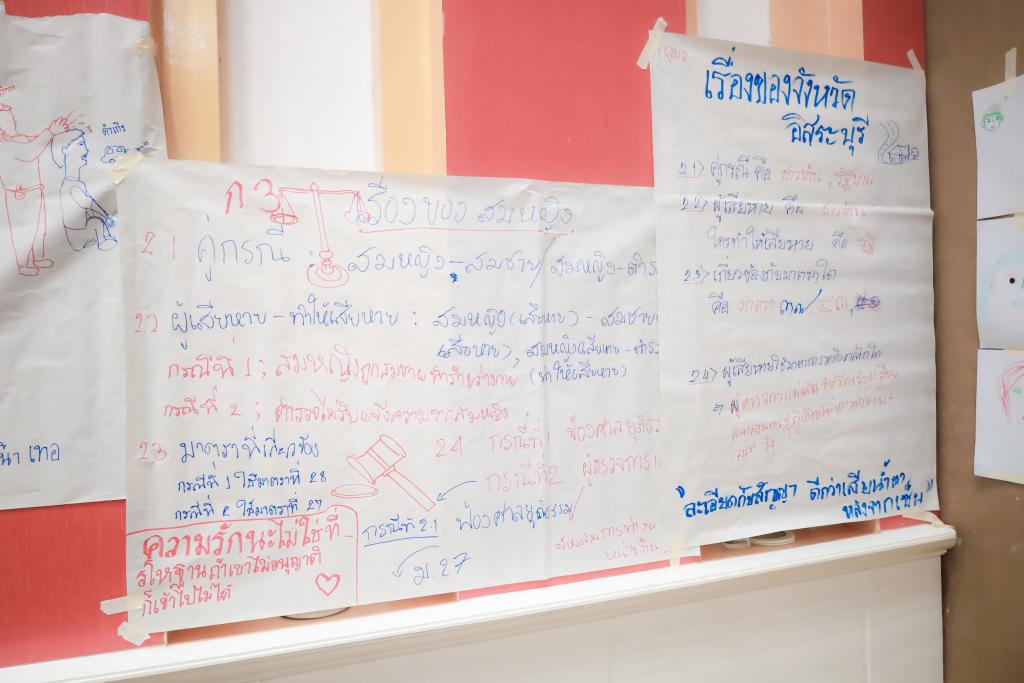 ตำเถิง
น้า เทอ
ก 3
เรื่องของ สมหญิง
2.1 คู่กรณี : สมหญิง - สมชาย / สมหญิง - ตำร
2.2 ผู้เสียหาย - ทำให้เสียหาย : สมหญิง (เสียหาย) - สมชาย
เสียหาย), สมหญิง (เสียหาย - ตำร
(ทำให้เสียหาย)
กรณีที่ 1 ; สมหญิงถูกสมชายทำร้ายร่างกาย
กรณีที่ 2 ; ตำรวจไม่รับแจ้งความจากสมหญิง
2.3 มาตราที่เกี่ยวข้อง
กรณีที่ 1 ใช้มาตราที่ 28
กรณีที่ 2 ใช้มาตราที่ 27
2.4 กรณีที่ 1 ฟ้องศาลยุติธร
กรณีที่ 2 ผู้ตรวจการ
กรณีที่ 2.1 ฟ้องศาลยุติธรรม
ม.27
ความรักนะไม่ใช่ที่
รโหฐานถ้าเขาไม่อนุญาติ
ก็เข้าไปไม่ได้
กลุ่ม 2
เรื่องของจังหวัด
อิสระบุรี
2.1> คู่กรณี คือ ชาวบ้าน, รัฐบาล
2.2> ผู้เสียหาย คือ ชาวบ้าน
ใครทำให้เสียหาย คือ รัฐ
2.3> เกี่ยวข้องกับมาตราใด
คือ มาตรา ๓๗/ ๔๓,
2.4> ผู้เสียหายใช้มาตรการหรือกลไกใด
"ละเอียดกับสัญญา ดีกว่าเสียน้ำตา
หลังจากเซ็น"